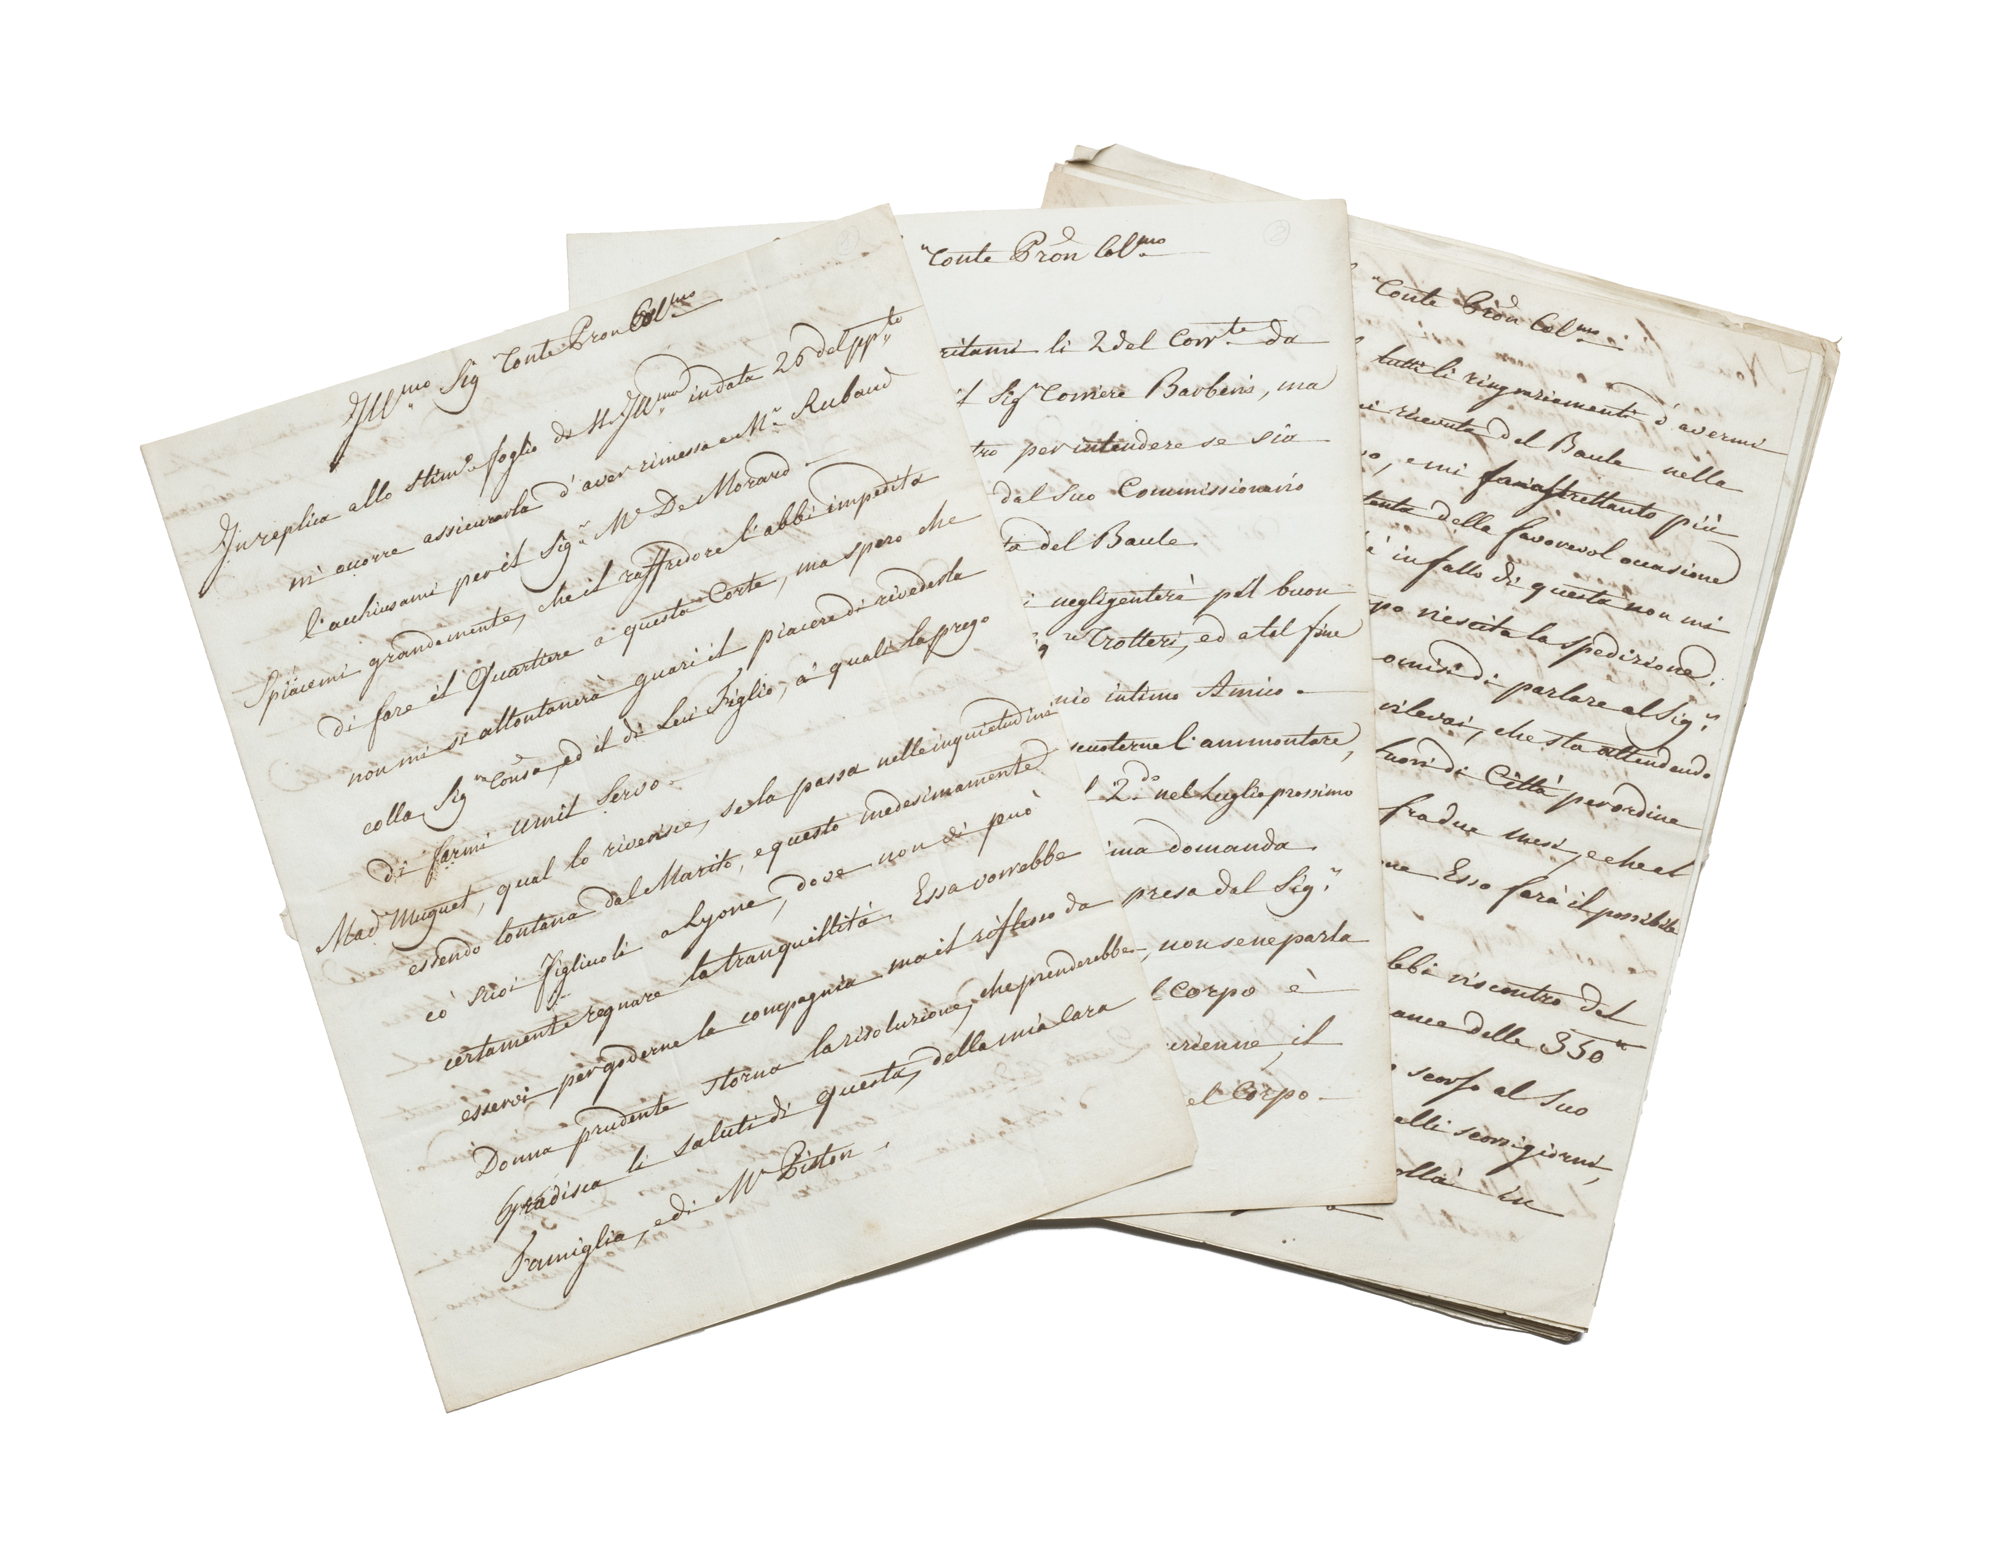 Ill.mo Sig Conte Pron Col.mo
In replica allo stim.o foglio di V.S. Ill.ma in data 26 del pp.to
mi occorre assicurarla d'aver rimessa a M.r Rubaud
l'acchiusami per il Sig.r M.r De Morard
Spiacemi grandemente, che il raffredore l'abbi impedita
di fare il Quartiere a questa Corte, ma spero che
non mi si allontanerà guari il piacere di rivederla
colla Sig.ra Cont.sa, ed il di Lei Figlio, a' quali la prego
di farmi umil servo
Mad Muguet, qual lo riverisce, se la passa nelle inquietudini
essendo lontana dal Marito, e questo medesimamente
cò suoi figliuoli a Lyone, dove non di può
certamente regnare la tranquillità. Essa vorrebbe
esservi per goderne la compagnia ma il riflesso da
Donna prudente storna la risoluzione, che prenderebbe
Gradisca li saluti di questa, della mia Cara
Famiglia, e di M.r Pitton
Conte Pron Col.mo
ritami li 2 del Corr.te da
il Sig.r Corriere Barberis, ma
tro per intendere se sia
dal Suo Commissionario
ta del Baule
i negligenterà pel buon
Trotteri, ed a tal fine
nio intimo Amico
scuoterne l'ammontare,
l 2.do nel Luglio prossimo
ima domanda
presa dal Sig.r
non se ne parla
l Corpo è
urienne, il
el Corpo
Conte Pron Col.mo
tutti li ringraziamenti d'avermi
ricevuta del Baule nella
o, e mi fari altrettanto più
tanta della favorevol occasione
è in fallo di questa non mi
po riescita la spedizione.
omisi di parlare al Sig.r
rilevai, che sta attendendo
fuori di Città per ordine
fra due mesi, e che al
ne Esso farà il possibile
ebbi riscontro del
ance delle 350
scorso al Suo
elli scorsi giorni,
ollà in